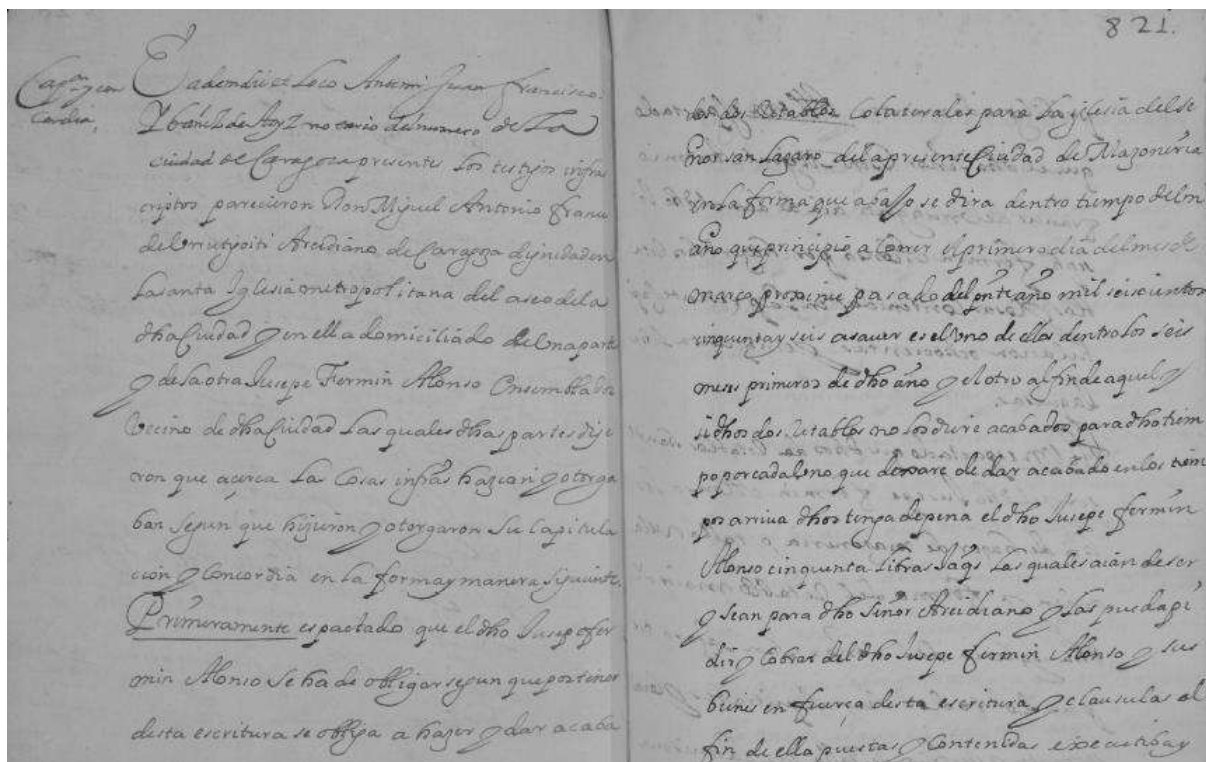 821.
Cap.on y con
cordia,
Eadem die et Loco Antemi Juan francisco
Ybañez de Aoyz notario del numero de La
ciudad de Çaragoça presentes los testigos infra
criptos parecieron Don Miguel Antonio frances
de Urrutigoiti Arcidiano de Çaragoza dignidad en
La santa Iglesia metropolitana del aseo de la
dha Ciudad y en ella domiciliado de Una parte
y de la otra Jusepe Fermin Alonso Ensamblador
Vecino de dha Ciudad Las quales dhas partes dije
ron que açerca La Cosas infras hazian y otorga
ban segun que hizieron y otorgaron su Capitula
cion y Concordia en la forma y manera siguiente.
Primeramente es pactado que el dho Jusepe fer
min Alonso se ha de obligar segun que por tenor
desta escritura se obliga a hazer y dar acaba
dos dos Retablos Colaterales para la yglesia del se
ñor san Lazaro de la presente Ciudad de Mazoneria
en la forma que abajo se dira dentro tiempo de Un
año que principio a Correr el primero dia del mes de
março proxime pasado del pnte año mil seiscientos
cinquenta y seis a sauer es el Uno de ellos dentro los seis
meses primeros de dho año y el otro al fin de aquel y
si dhos dos Retablos no los diere acabados para dho tiem
po por cada Uno que dexare de dar acabado en los tiem
pos arriva dhos tenga de pena el dho Jusepe fermin
Alonso cinquenta Libras Jaqs Las quales aian de ser
y sean para dho Señor Arcidiano y las pueda pi
dir y Cobrar del dho Jusepe fermin Alonso y sus
bienes en fuerça desta escritura y clausulas al
fin de ella puestas y Contenidas executiba y